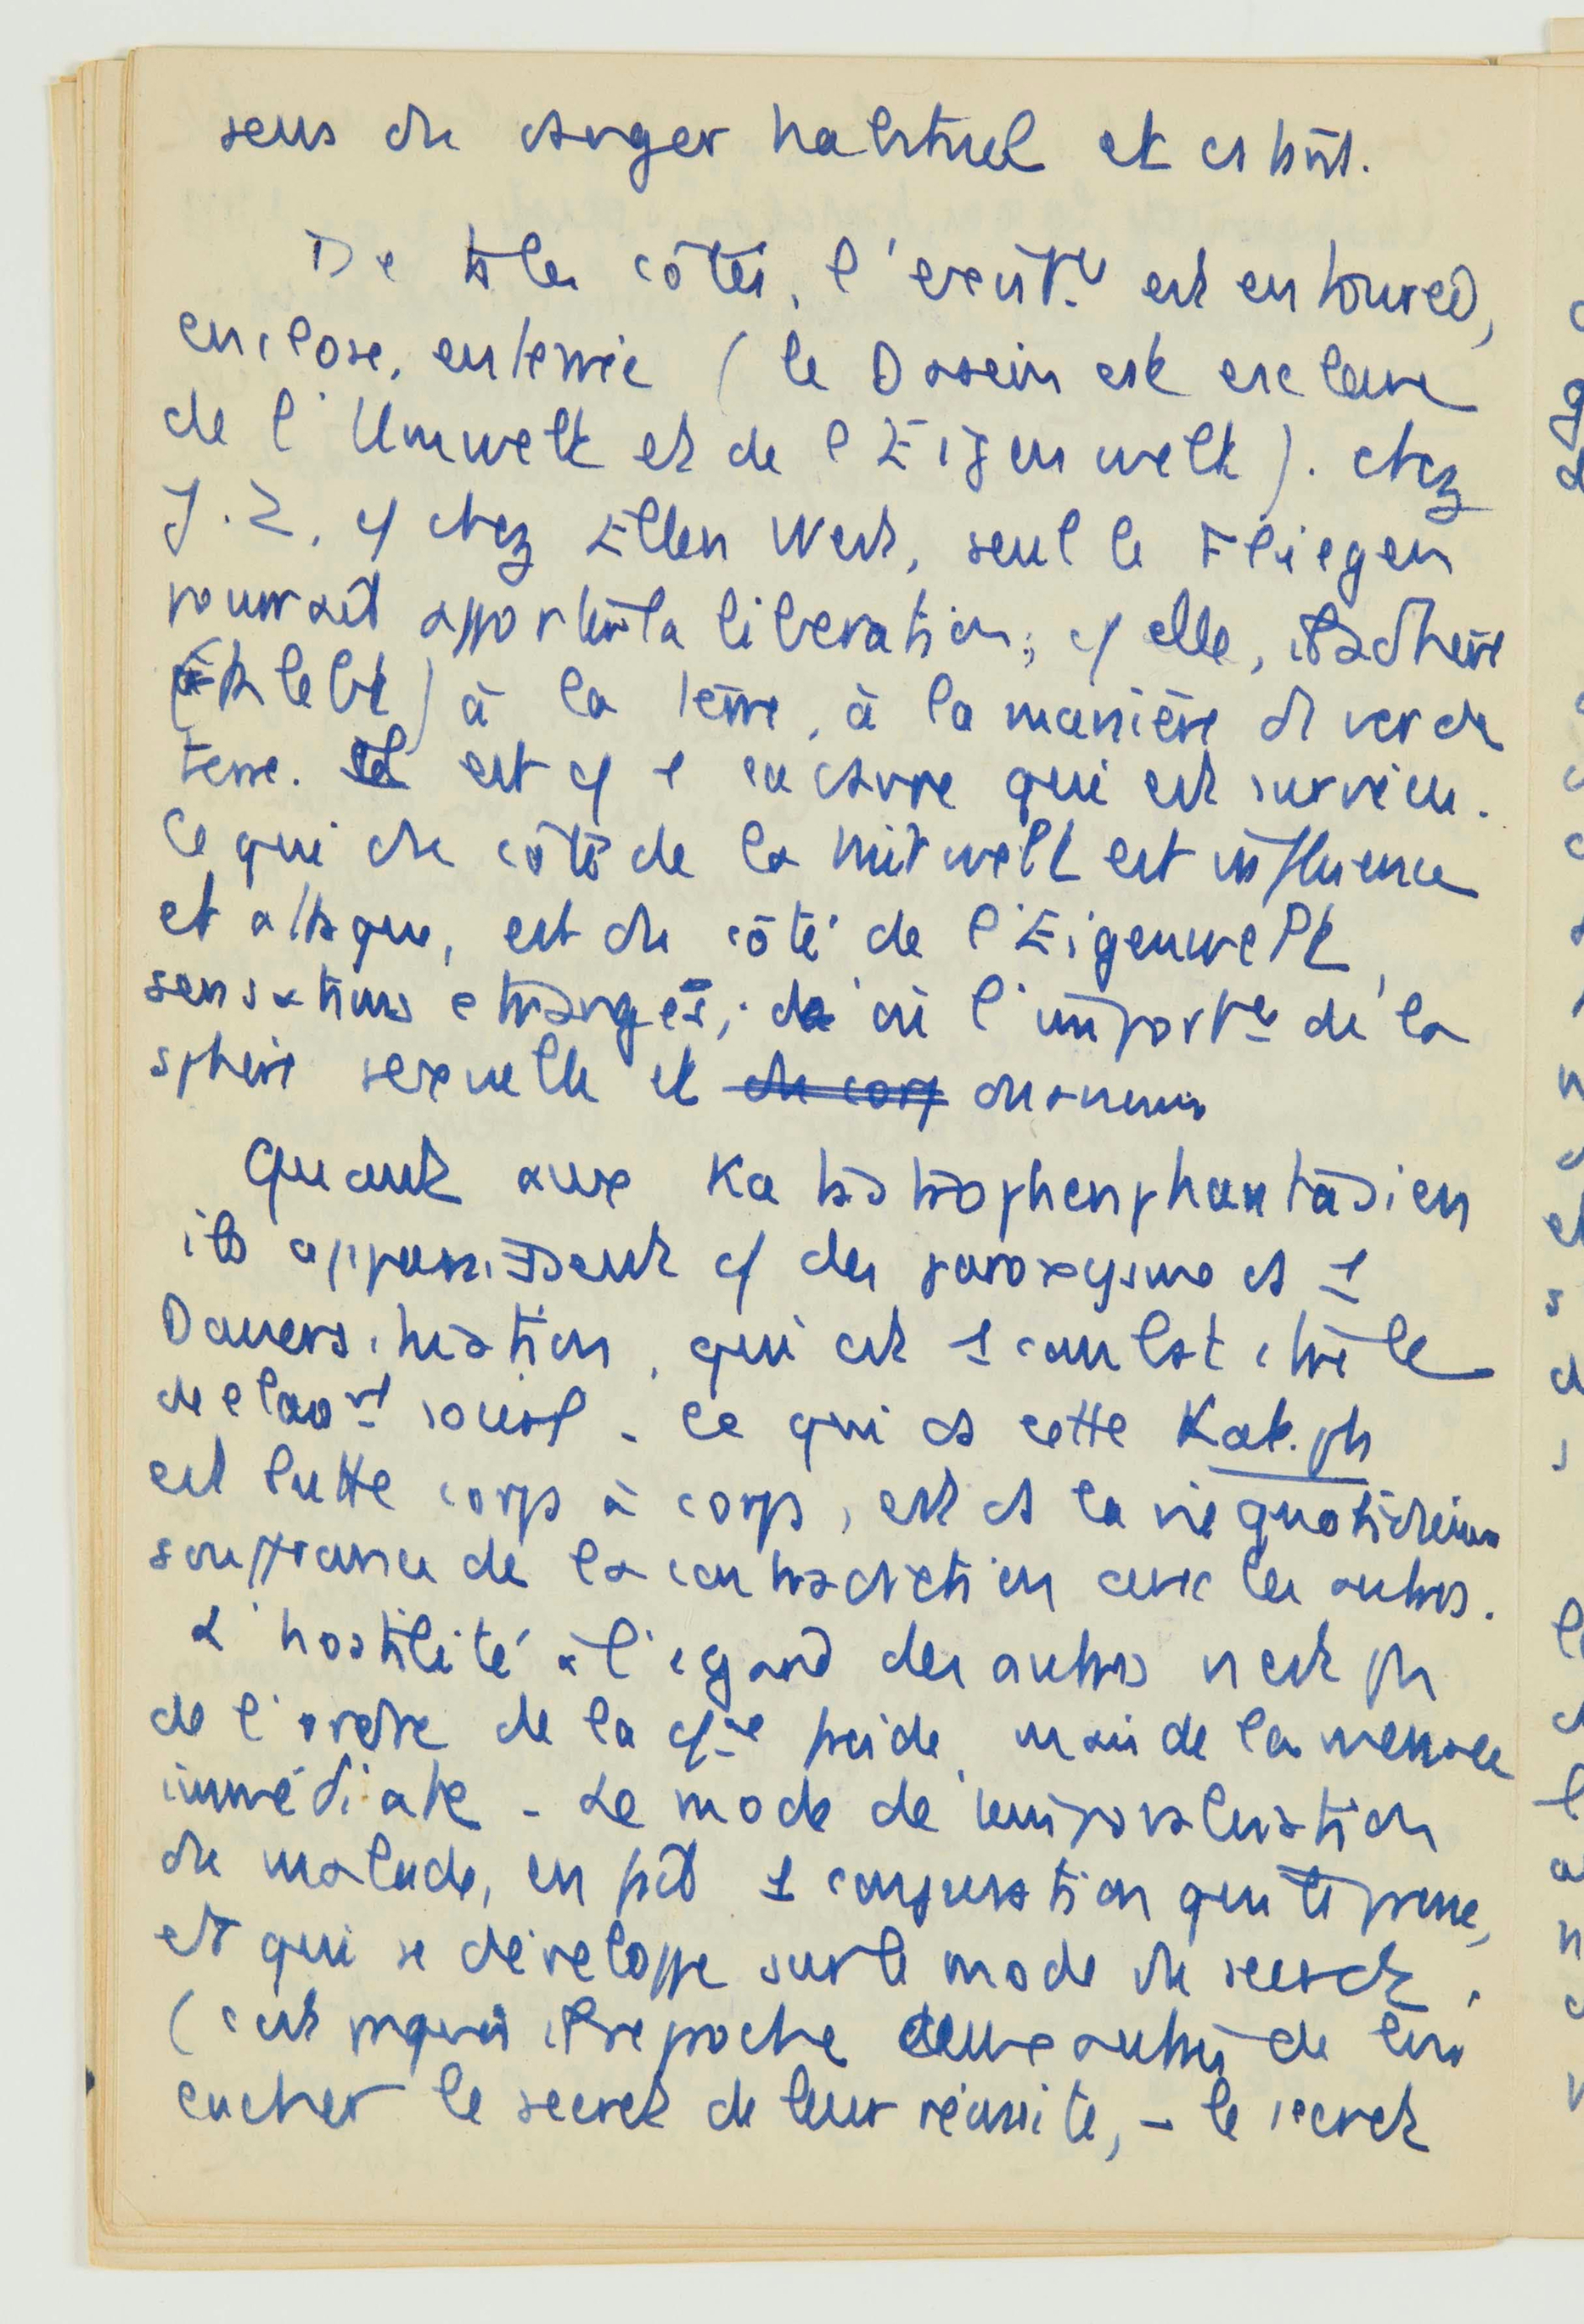 sens du danger habituel et ds
De ts les côtés, l'exist^ce est entourée,
enclose, enterrée (le Dasein est esclave
de l'Umwelt et de l'Eigenwelt). chez
J. Z, cf chez Ellen West, seul le Fliegen
pourrait apporter la libération; cf elle, il adhère
(klebt) à la terre, à la manière d ver de
terre. Il est cf 1 cadavre qui est survécu.
Ce qui du côté de la Mitwelt est influence
et attaque, est du côté de l'Eigenwelt,
sensations étranges; d'où l'import^ce de la
sphère sexuelle et du corp
Quant aux Katastrophenphantasien
ils apparaissent cf des paroxysmes ds 1
Dauersituation, qui est 1 combat
social - Ce qui ds cette Kat. ph
est lutte corps à corps, est ds la vie quotidienne
souffrance de la contradiction avec les autres.
L'hostilité à l'égard des autres n'est pas
de l'ordre de la cf^ce perdue, mais de la menace
immédiate - Le mode de temporalisation
du malade, en fait 1 conjuration que le prene,
et qui se développe sur le mode du secret.
(c'est pquoi il reproche aux autres de lui
cacher le secret de leur réussite, - le secret